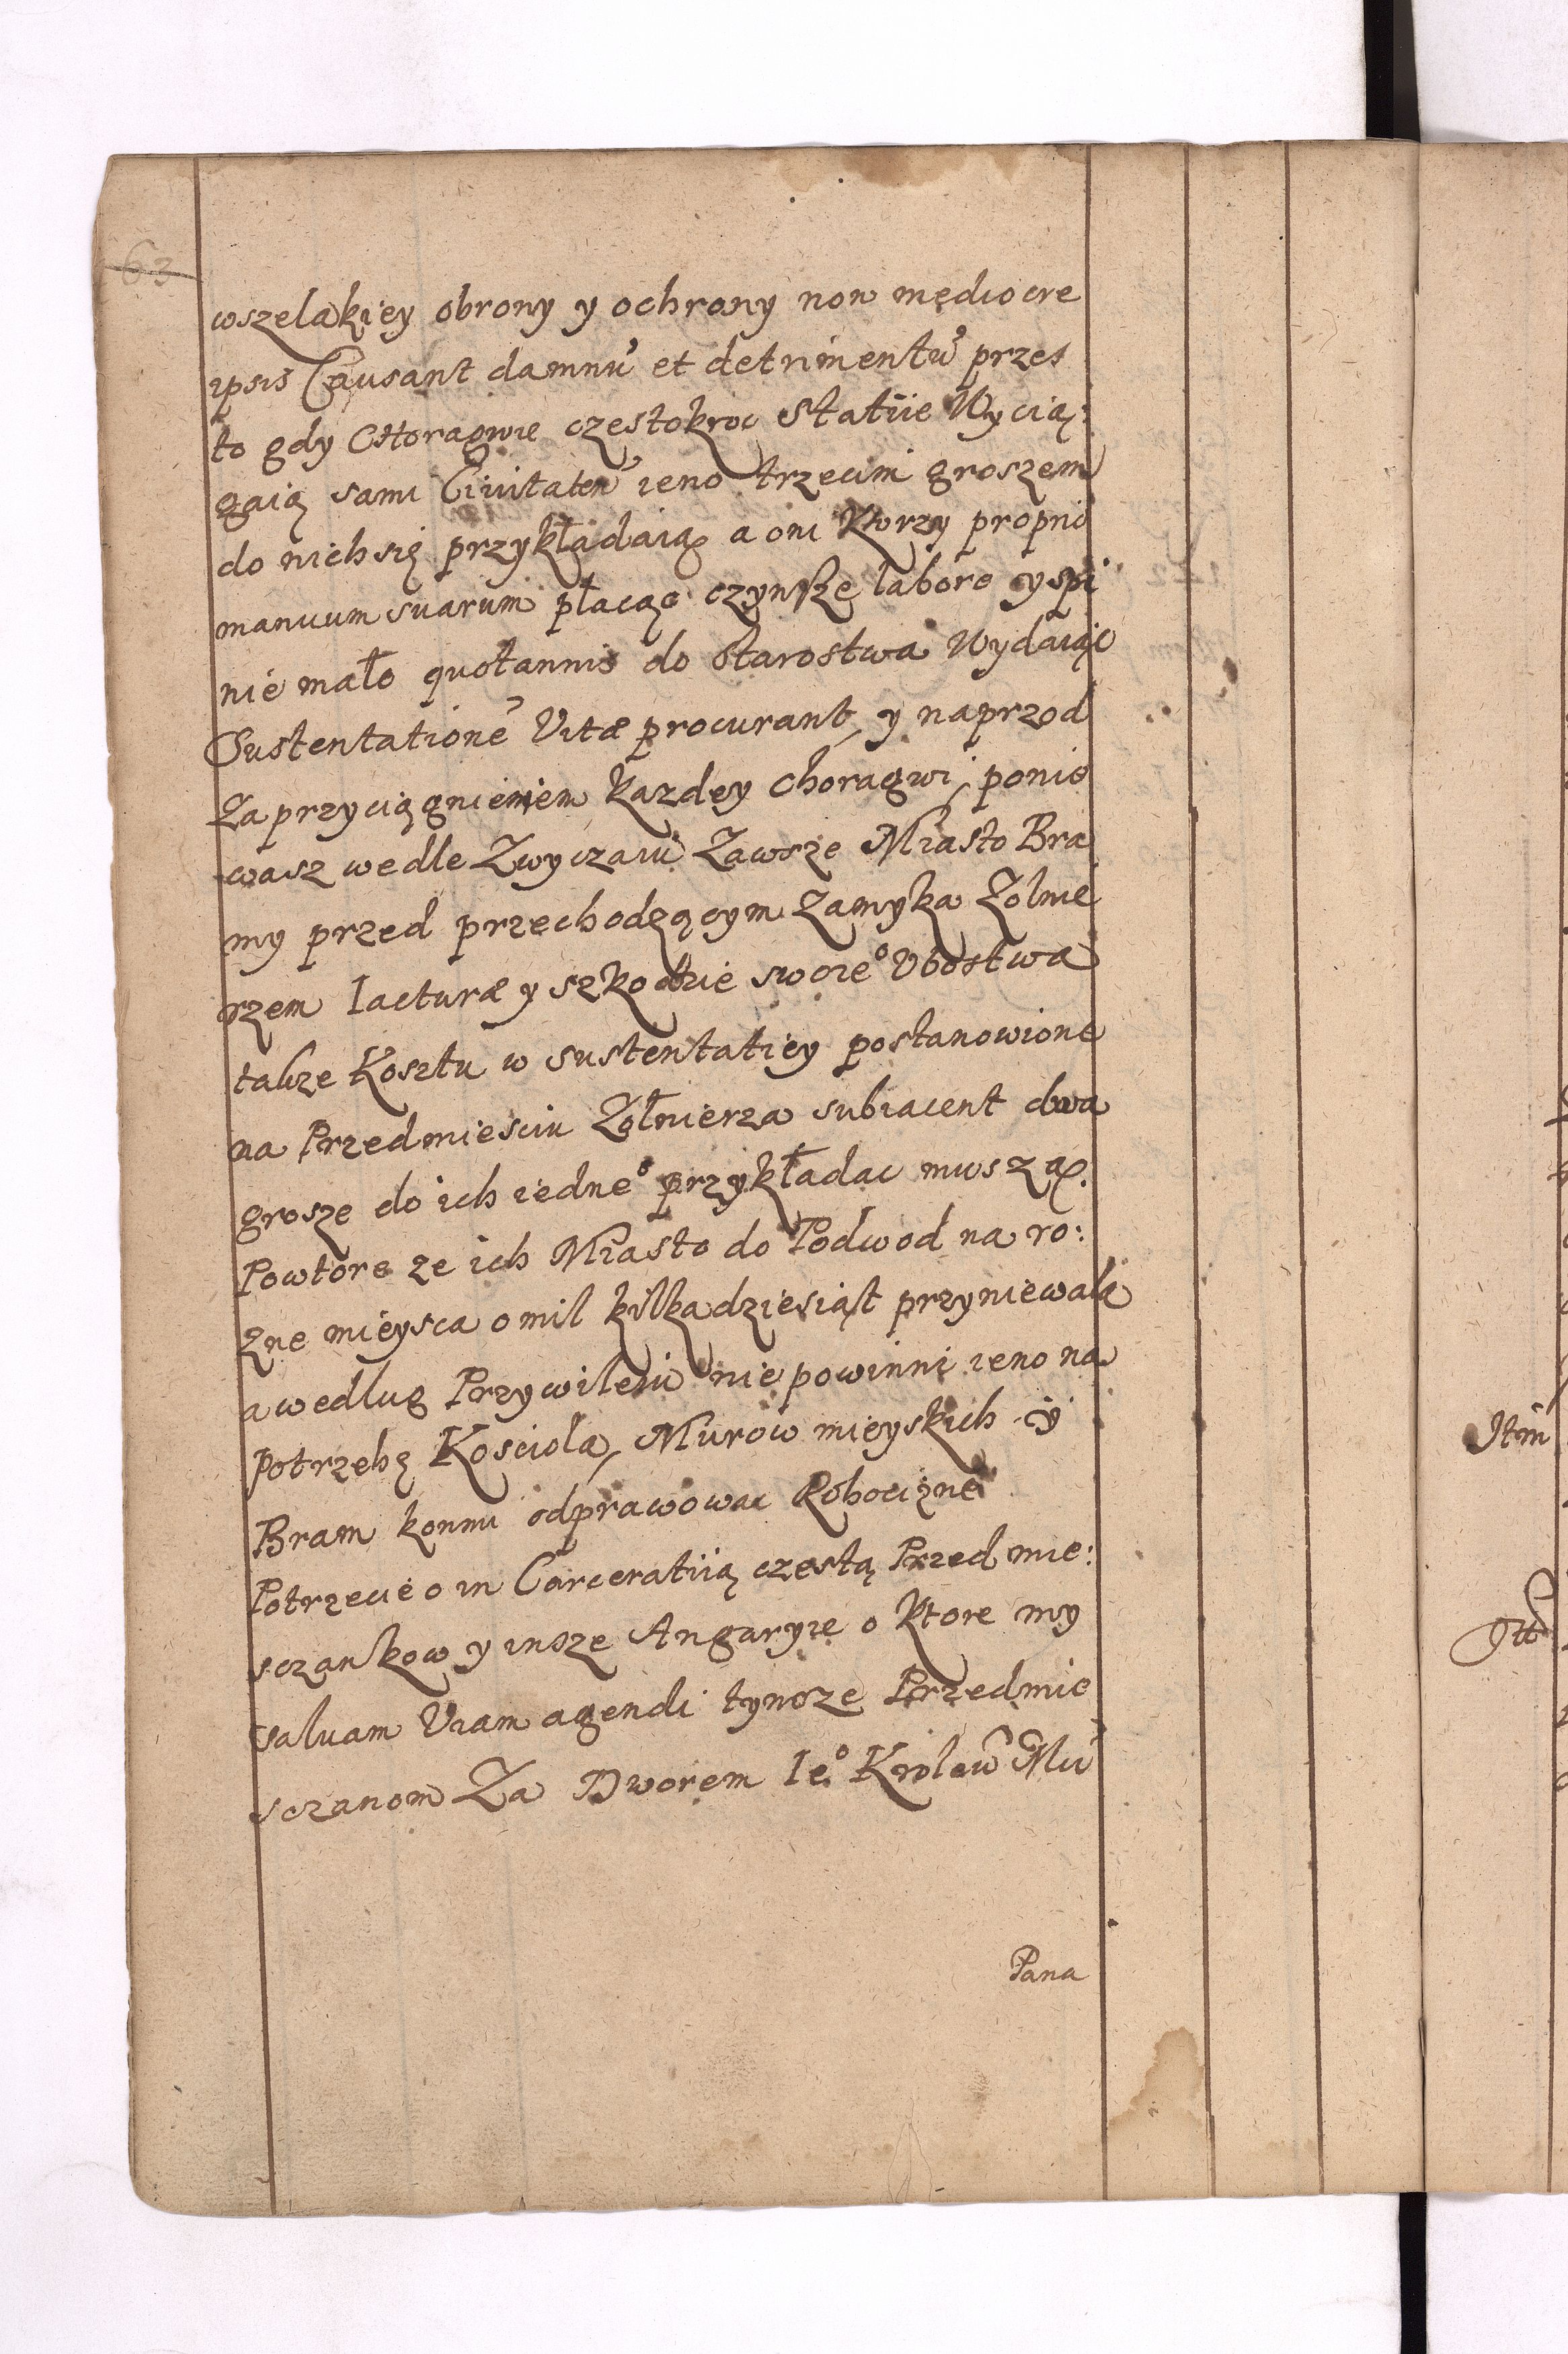 63
wszelakiey obrony y ochrony non mędiocre
ipsis Causant damnu' et detrimentu' przes
to gdy CHoragwie częstokroc Statiie Wycią:
gaią sami Ciuitaten' ieno trzecim groszem
do nich się przykładaią a oni Ktorzy proprio
manuum suarum płacąc czynsze labore y spi
nie mało quotannis do Starostwa Wydaiąc
Sustentatione' Vitæ procurant, y naprzod
Za przyciągnieniem kazdey choragwi, ponie
wasz wedle Zwyczaiu Zawsze Miasto Bra
my przed przechodzącym Zamyka Zolnie
rzem Iacturæ y szkodzie swoie° Vbostwa
takze Kosztu w sustentatiey postanowione
na Przedmiesciu Zołnierza subiacent dwa
grosze do ich iedne° przykładac muszą.
Powtore ze ich Miasto do Podwod na ro:
zne mieysca o mil kilkadziesiąt przyniewala
a wedlug Przywileiu nie powinni ieno na
potrzebę Kosciola, Murow mieyskich y
Bram konmi odprawowac Robociznę
Potrzecie o in Carceratiią częstą Przed mie:
sczankow y insze Angaryie o Ktore my
saluam Viam agendi tymsze Przedmie
sczanom Za Dworem Ie° Krolew Mci
Pana
Itm
Itt